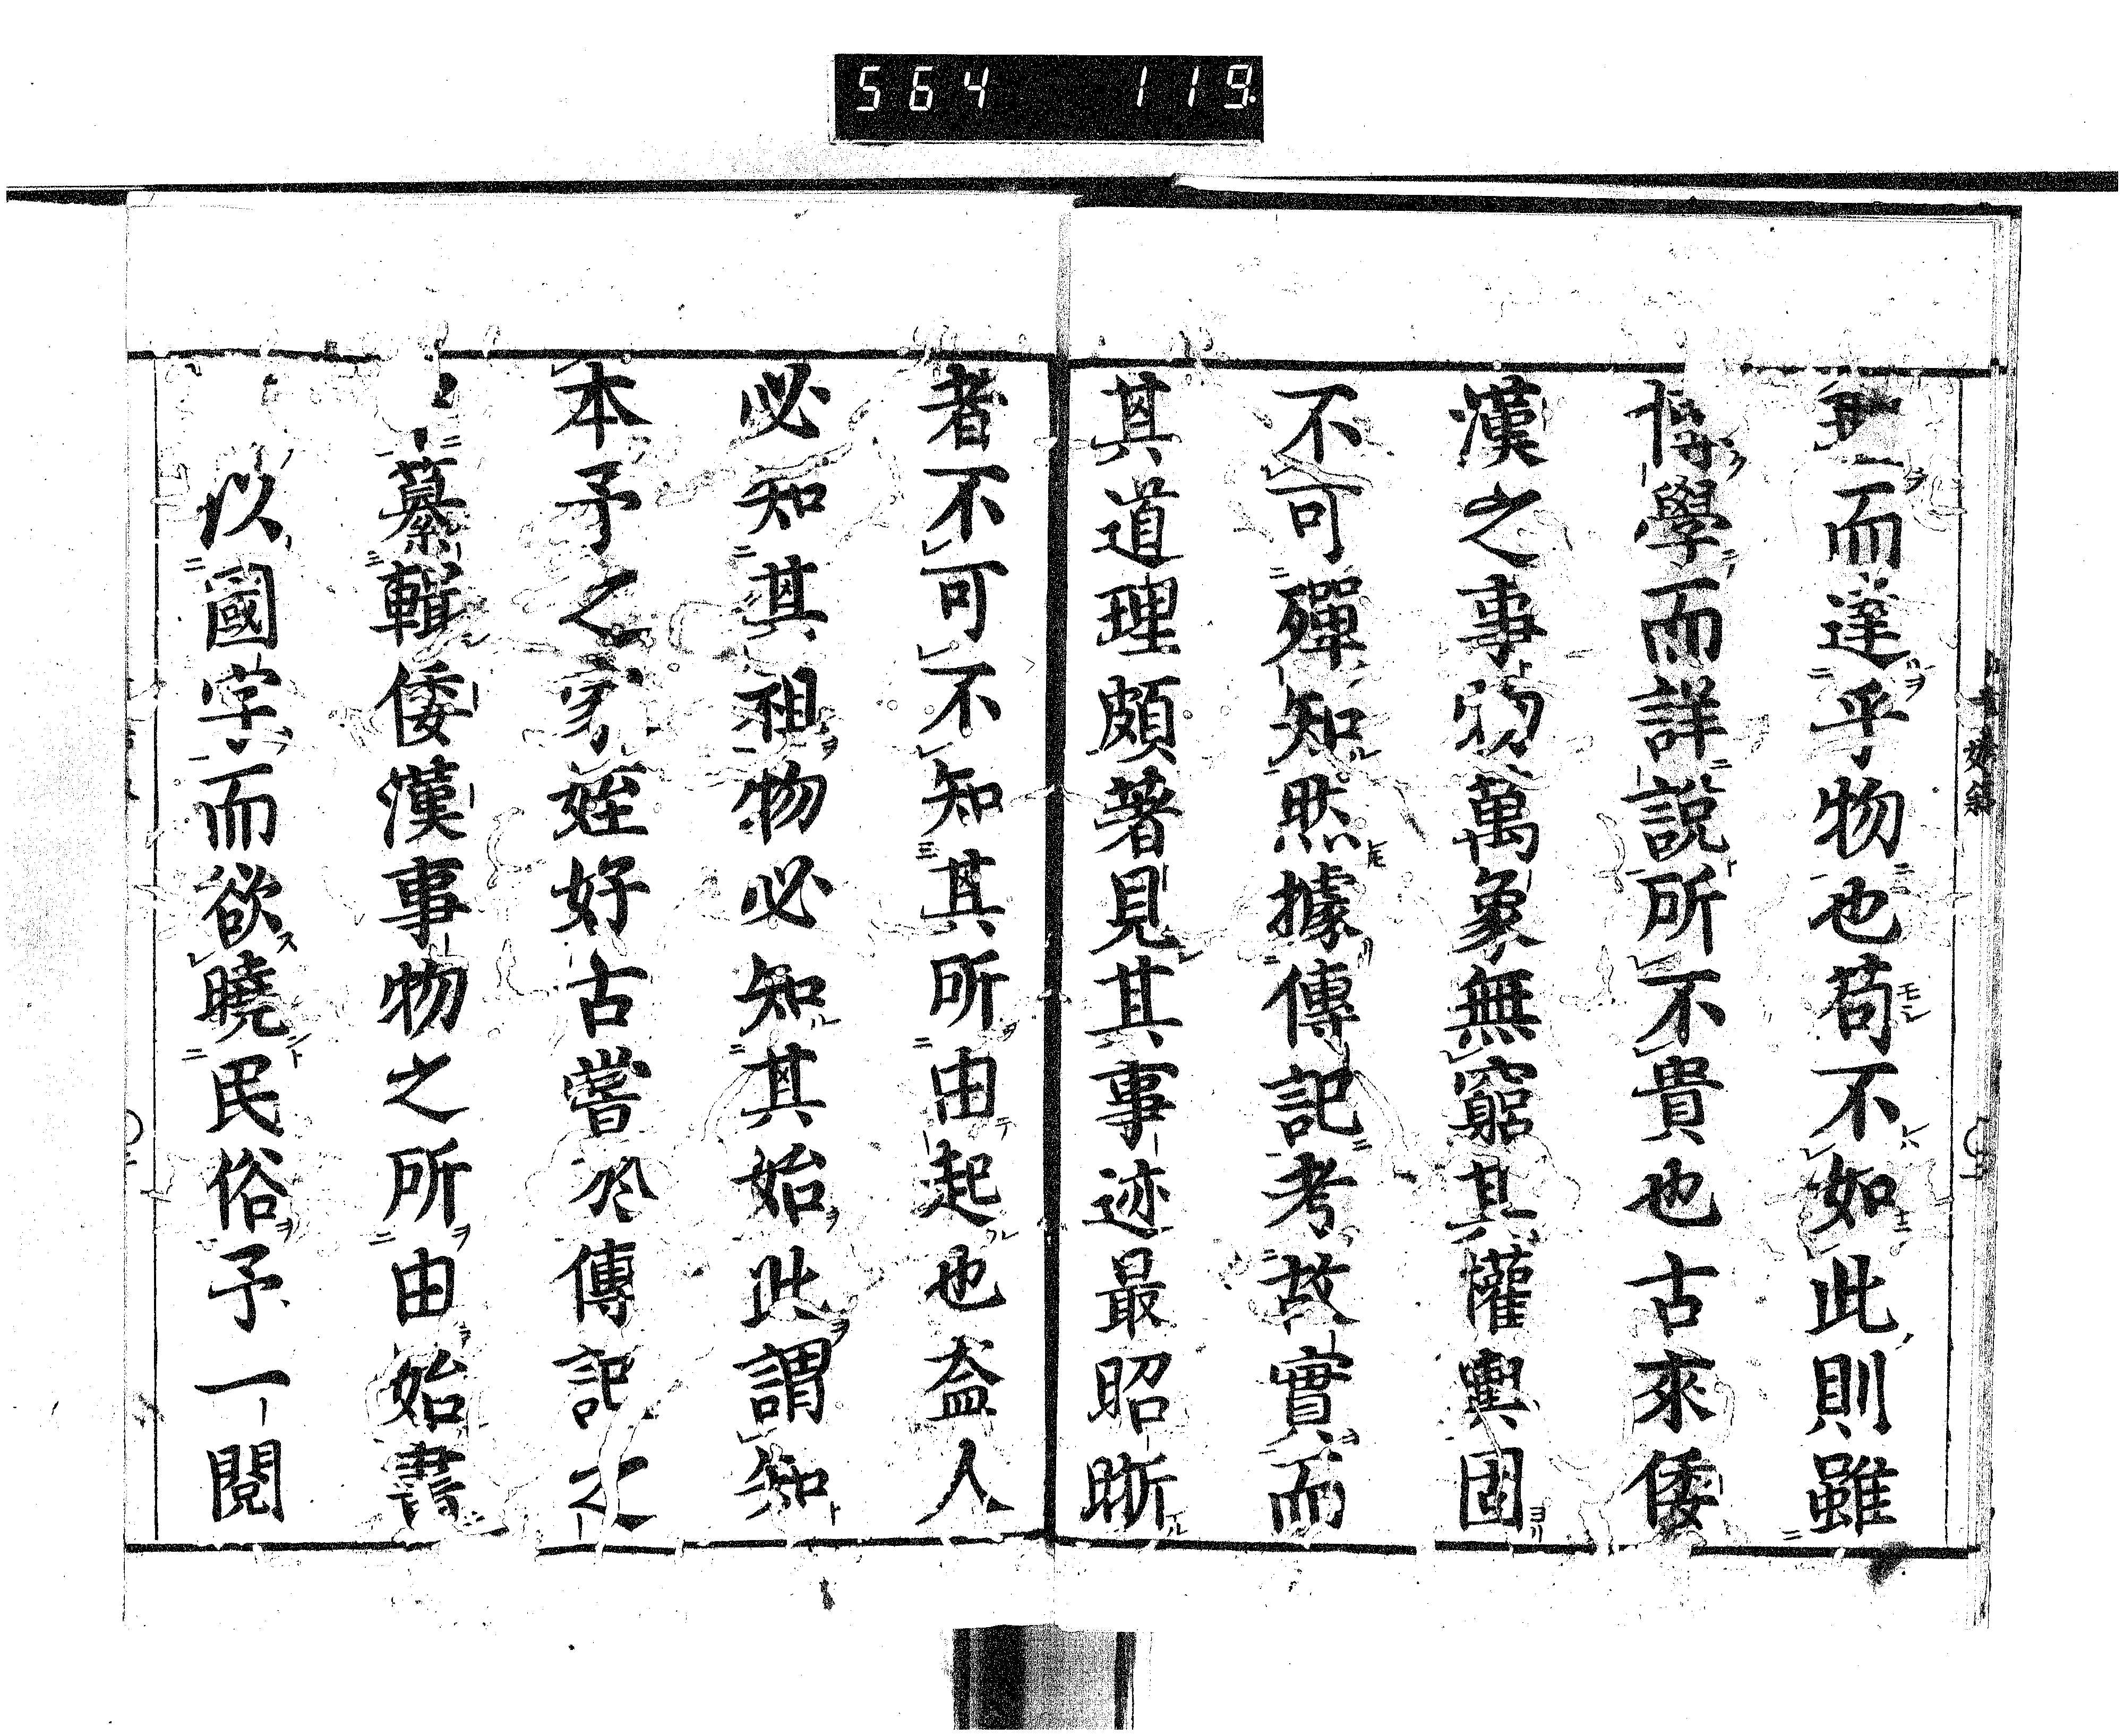 564 119
而達乎物也苟不如此則雖
博學而詳說所不貴也古來倭
漢之事物萬象無窮其權輿固
不可殫知然據傳記考故實而
其道理頗著見其事迹最昭晰
者不可不知其所由起也盍人
必知其祖物必知其始此謂知
本予之家姪好古嘗於傳記之
纂輯倭漢事物之所由始書
以國字而欲曉民俗予一閱